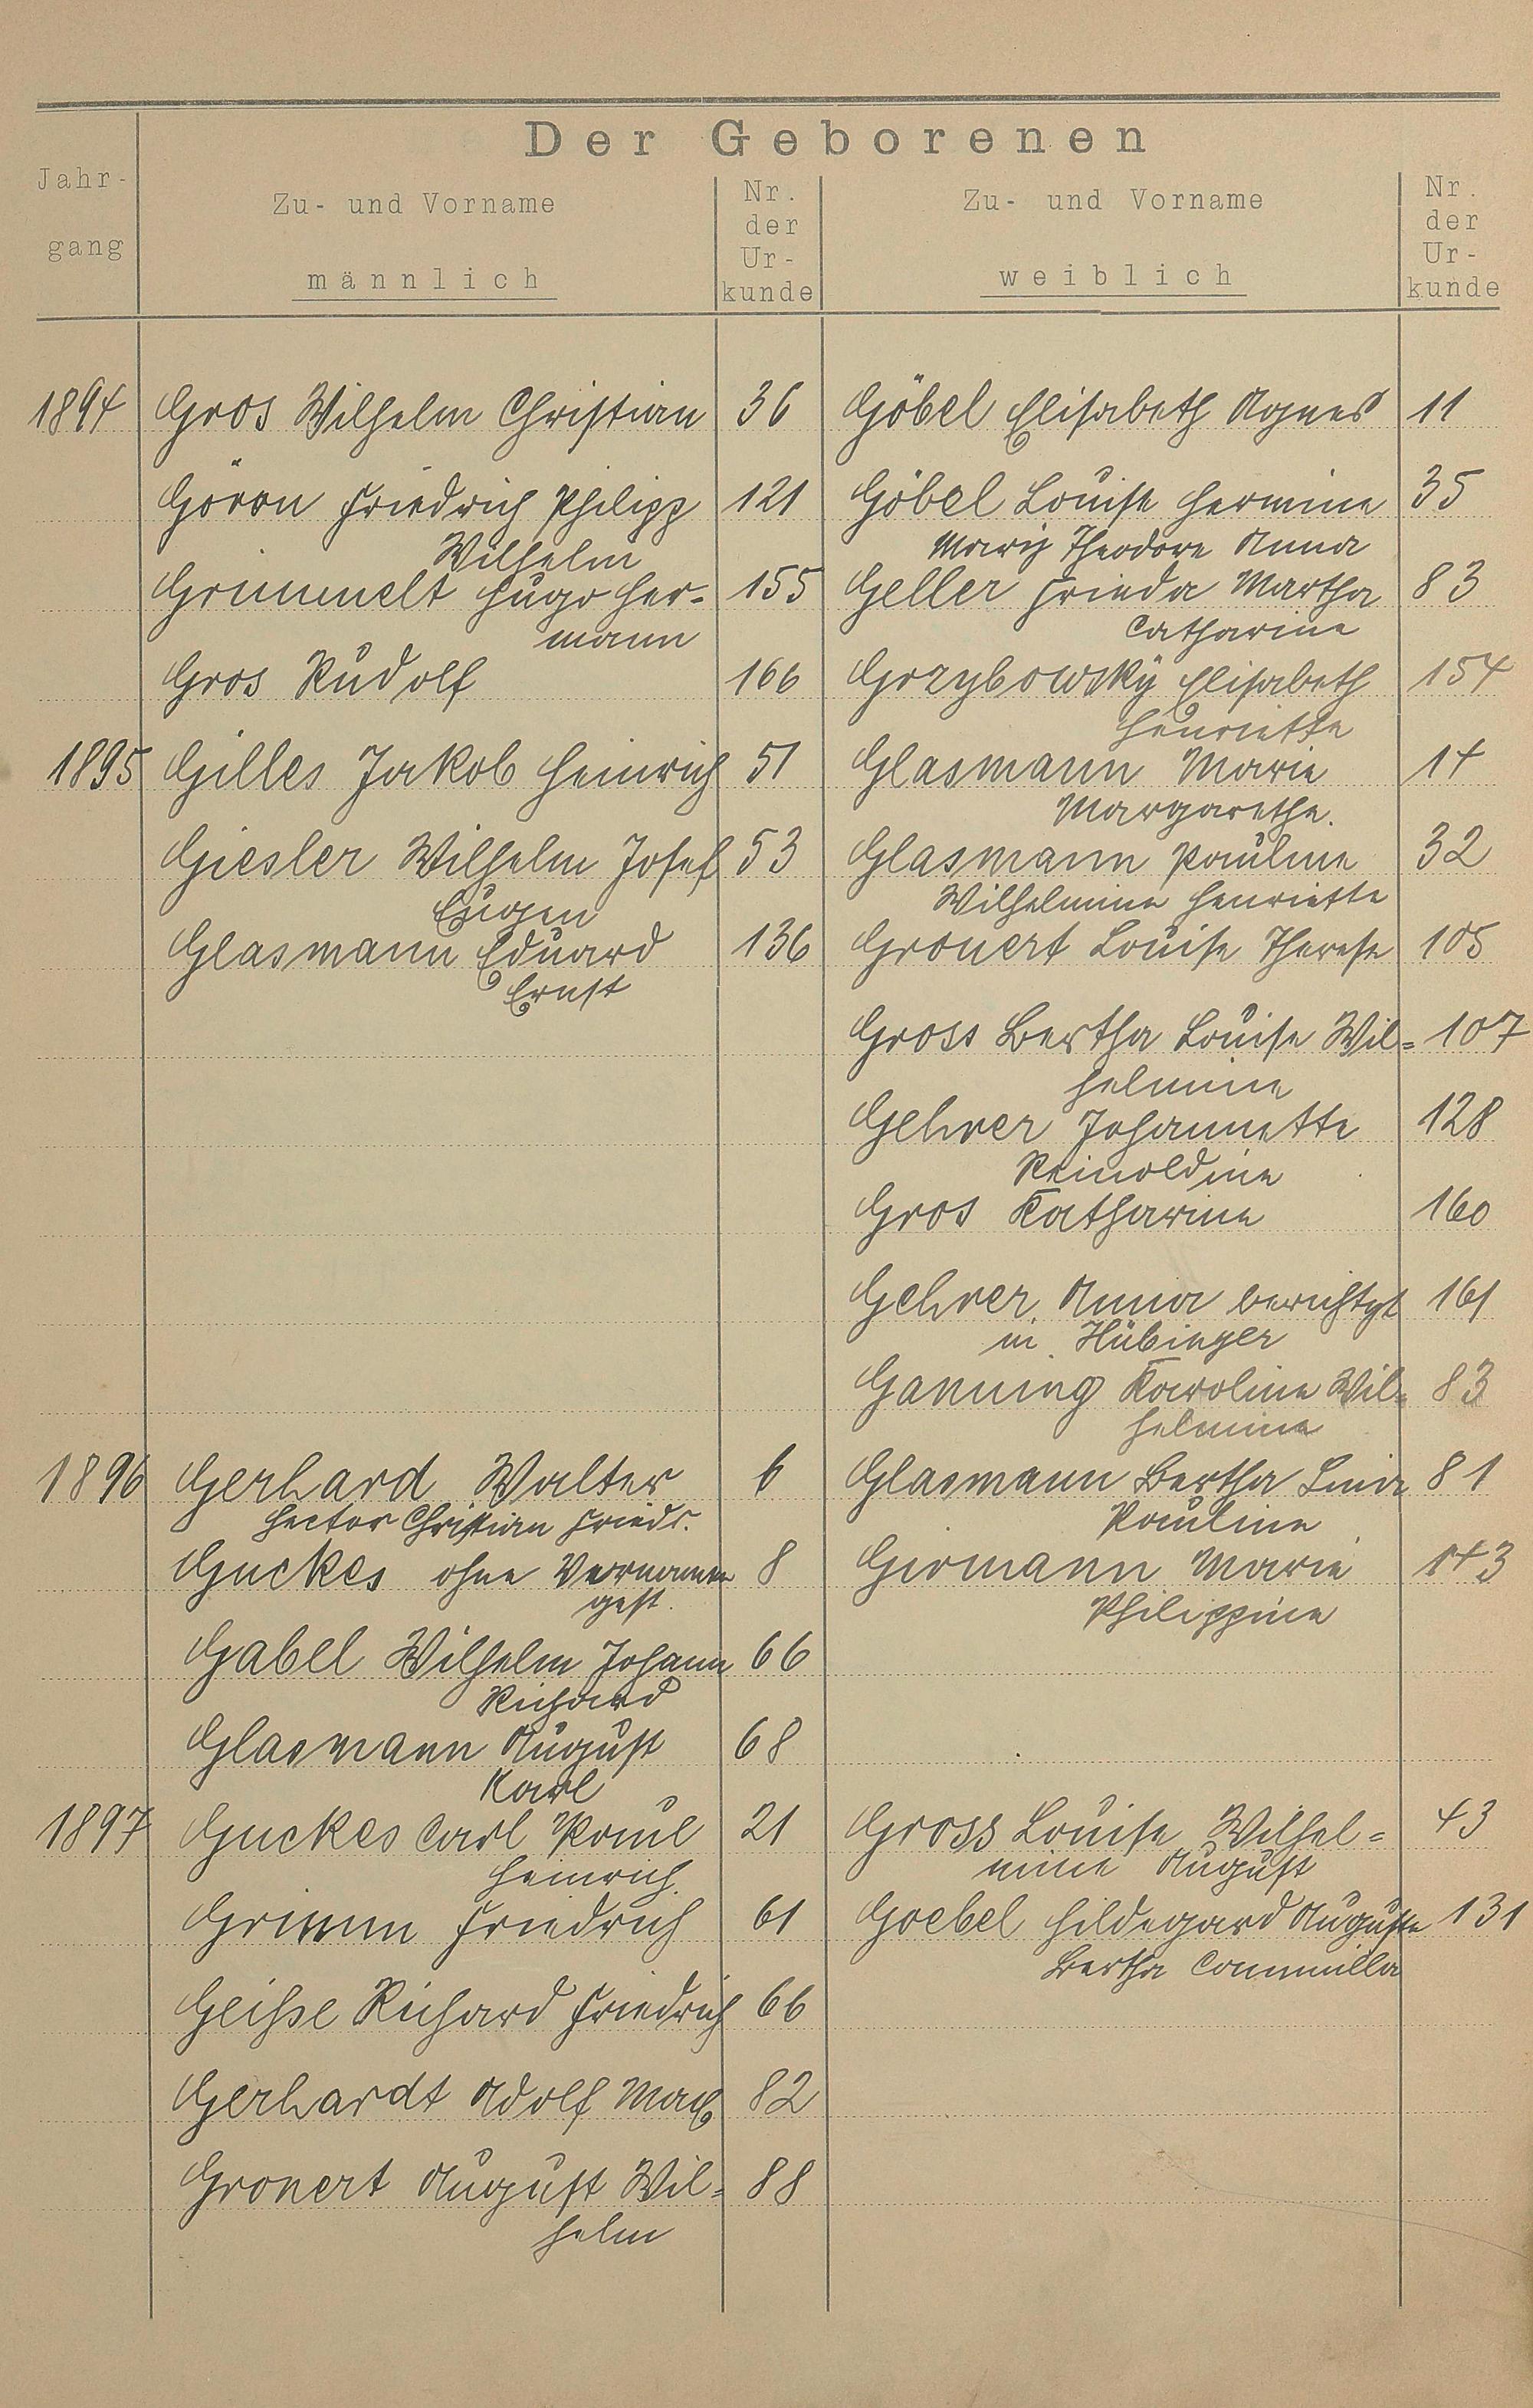 Der Geborenen
Jahr-
gang
Zu- und Vorname
männlich
Nr.
der
Ur-
kunde
Zu- und Vorname
weiblich
Nr.
der
Ur-
kunde
1894 Gros Wilhelm Christian 36 Göbel Elisabeth Agnes 11
Friedrich Philipp 121 Göbel Louise Hermine 35
Wilhelm Marie Theodore Anna
Grimmelt Hugo Her- 155 Geller Frieda Martha 83
mann Catharine
Gros Rudolf 166 Grzybowsky Elisabeth 154
Henriette
1895 Gilles Jakob Heinrich 51 Glasmann Marie 14
Margarethe.
Giesler Wilhelm Josef 53 Glasmann Pauline 32
Eugen Wilhelmine Henriette
Glasmann Eduard 136 Gronert Louise Therese 105
Ernst
Gross Bertha Louise Wil= 107
helmine
Gehrer Johannette 128
Reinoldine
Gros Katharine 160
Gehrer Anna berichtgt 161
in Hübinger
Ganning Karoline Wil= 83
helmine
1896 Gerhard Walter 6 Glasmann Bertha 81
Hector Christian Friedr. Pauline
Guckes ohne Vornamen 8 Girmann Marie 143
gest. Philippine
Gabel Wilhelm Johann 66
Richard
Glasmann August 68
Karl
1897 Guckes Carl Paul 21 Gross Louise Wilhel= 43
Heinrich mine August
Grimm Friedrich 61 Goebel Hildegard Auguste 131
Bertha Cammilla
Geiße Richard Friedrich 66
Gerhardt Adolf Max 82
Gronert August Wil= 88
helm